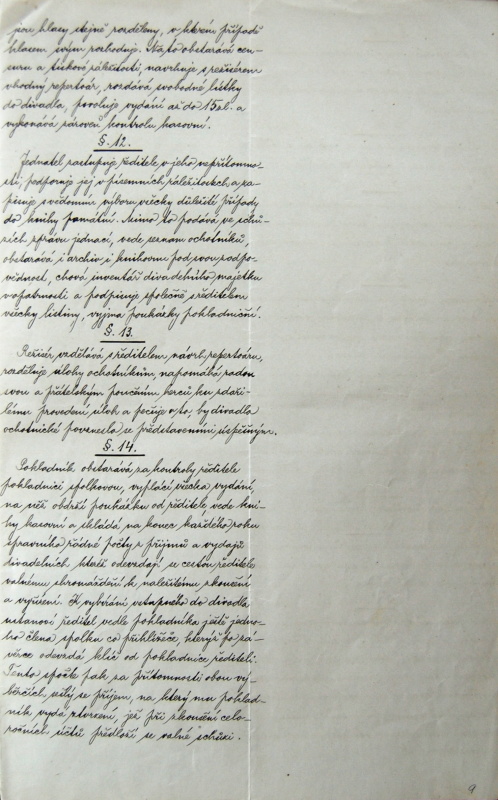 jsou hlasy stejně rozděleny, v kterém případě
hlasem svým rozhoduje. Na to obstarává cen-
suru a tiskové záležitosti, navrhuje s režisérem
vhodný repertoár, rozdává svobodné lístky
do divadla, povoluje vydání až do 15 zl. a
vykonává zároveň kontrolu kasovní.
§. 12.
Jednatel zastupuje ředitele v jeho nepřítomno-
sti, podporuje jej v písemních záležitostech, a za-
pisuje s vědomím výboru všecky důležité případy
do knihy pamětní. Mimo to podává ve schů-
zích zprávu jednací, vede seznam ochotníků,
obstarává i archiv i knihovnu pod svou zodpo-
vědnost, chová inventář divadelního majetku
v opatrnosti a podpisuje společně s ředitelem
všecky listiny, vyjma poukázky pokladniční.
§. 13.
Režisér, vzdělává s ředitelem návrh repertoáru,
rozděluje úlohy ochotníkům, napomáhá radou
svou a přátelským poučením herců ku zdaři-
lému provedení úloh a pečuje o to, by divadlo
ochotnické povzneslo se představeními úspěšným.
§. 14.
Pokladník obstarává za kontroly ředitele
pokladnici spolkovou, vyplácí všecka vydání,
na něž obdrží poukázku od ředitele, vede kni-
hy kasovní a skládá na konec každého roku
správního řádné počty z příjmů a vydajů
divadelních, které odevzdají se cestou ředitele
valnému shromáždění k náležitému zkoušení
a vyřízení. K vybírání vstupného do divadla
ustanoví ředitel vedle pokladníka ještě jedno-
ho člena spolku co přihlížeče, kterýž po zá-
věrce odevzdá klíč od pokladnice řediteli.
Tento spočte pak za přítomnosti obou vý-
běrčích vždy se příjem, na který mu poklad-
ník vydá stvrzení, jež při zkoušení celo-
ročních účtů předloží se valné schůzi.
9